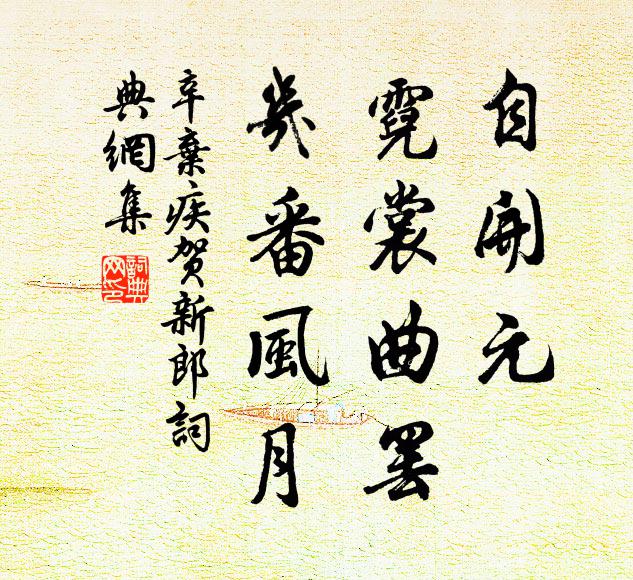 自開元
霓裳曲罷
幾番風月
辛棄疾賀新郎詞
典網集
詞典
网印